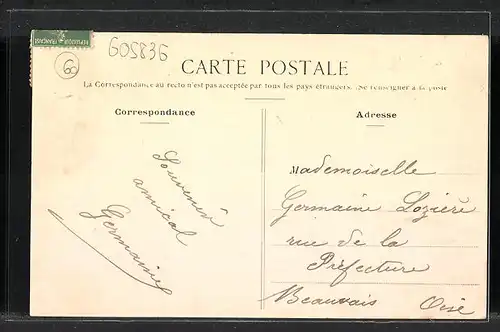 RÉPUBLIQUE FRANÇAISE
605836
60
CARTE POSTALE
La Correspondance au recto n'est pas acceptée par tous les pays étrangers. (Se renseigner à la poste
Correspondance
Adresse
Souvenir
amical
Germaine
Mademoiselle
Germaine Lozière
rue de la
Préfecture
Beauvais Oise